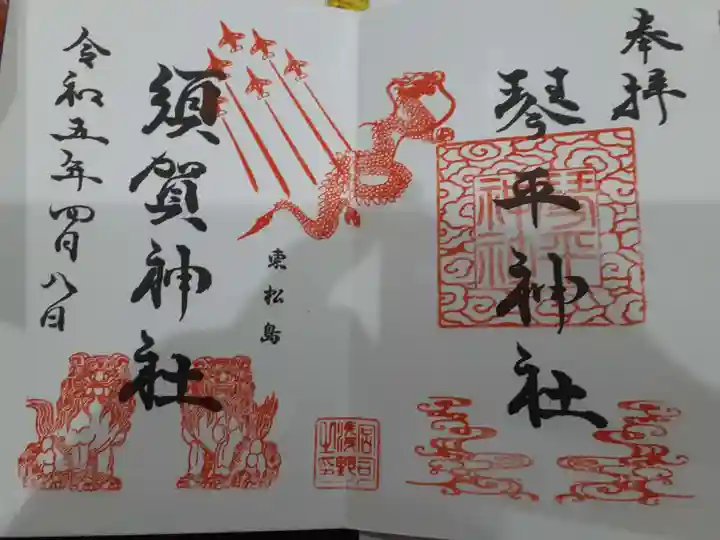 奉拝
琴平神社
琴平
神社
東松島
須賀神社
令和五年四月八日